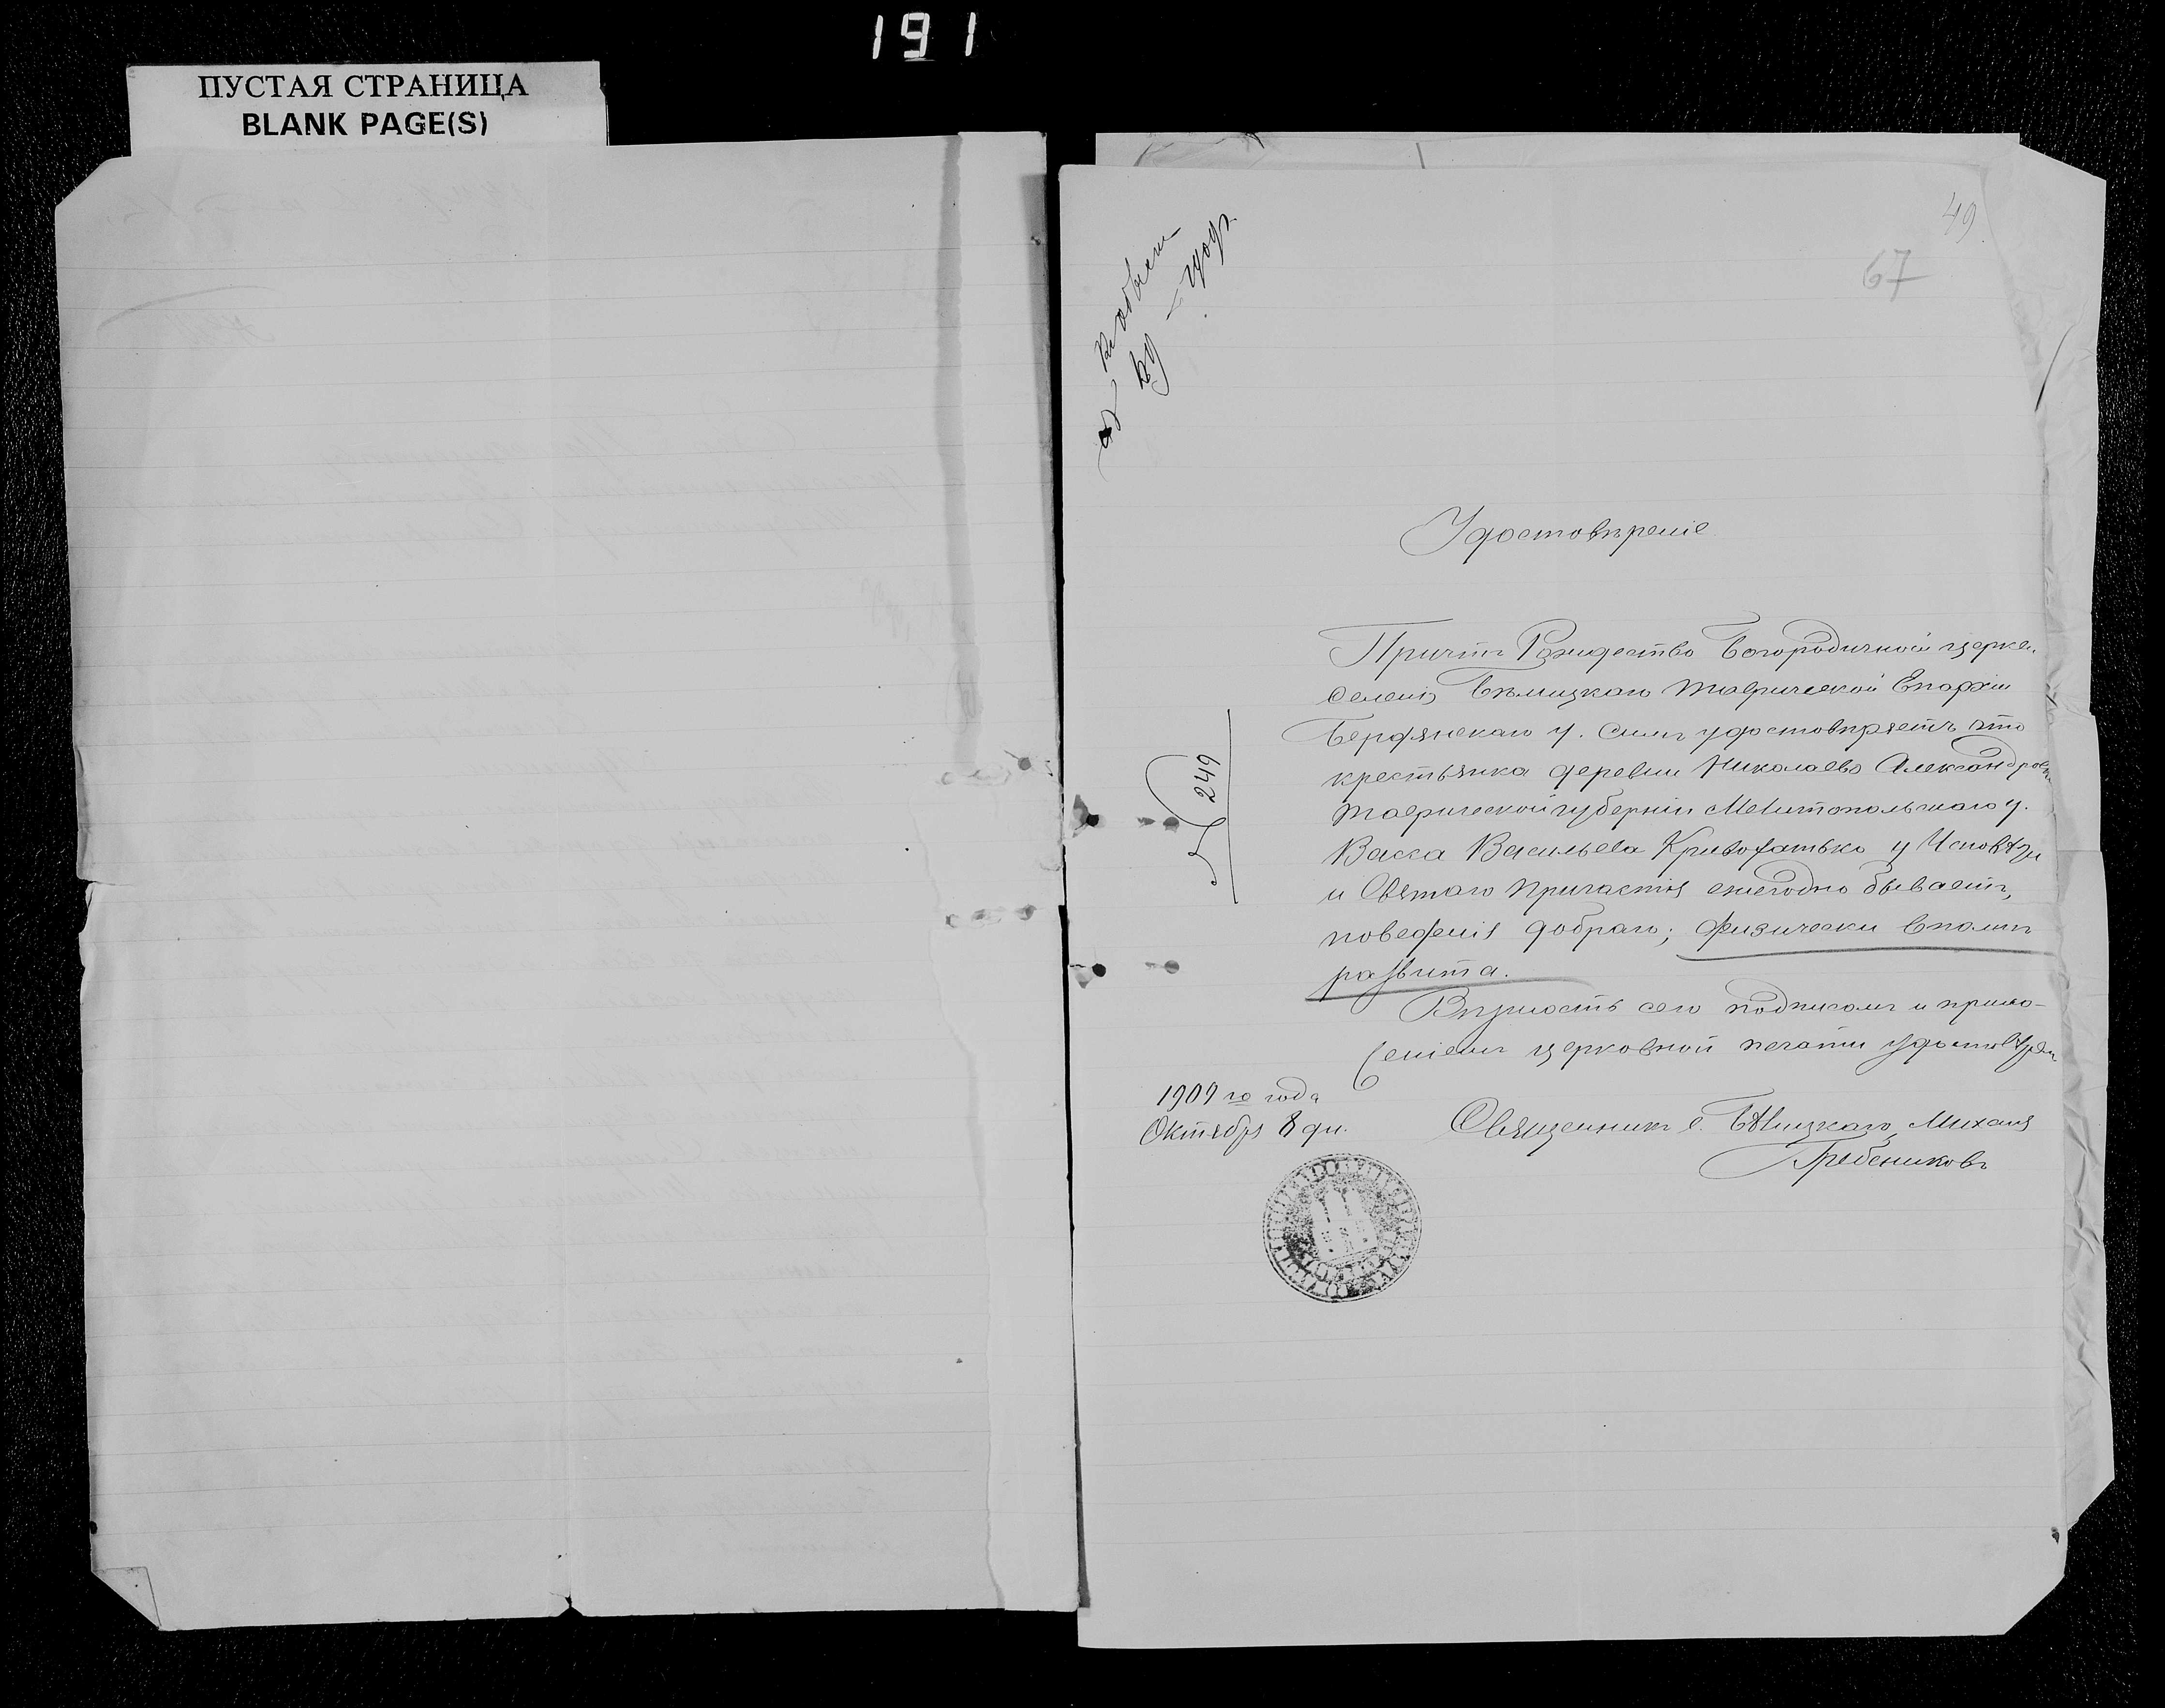 191
ПУСТАЯ СТРАНИЦА
BLANK PAGE(S)
49.
67
Удостовѣреніе
Причтъ Рождество Богородичной церкв.
селенія Бѣлицкаго Таврической Епархіи
Бердянскаго у. симъ удостовѣряетъ что
крестьянка деревни Николаево Александровки
Таврической губерніи Мелитопольскаго у.
Васса Васильева Кривохатько у Исповѣди
и Святаго Причастія ежегодно бываетъ,
поведенія добраго; физически вполнѣ
развита.
Вѣрность сего подписомъ и прило-
женіемъ церковной печати удостовѣряю
249
1909 го года
Октября 8 дн.
Священникъ с. Бѣлицкаго, Михаил
Гребениковъ